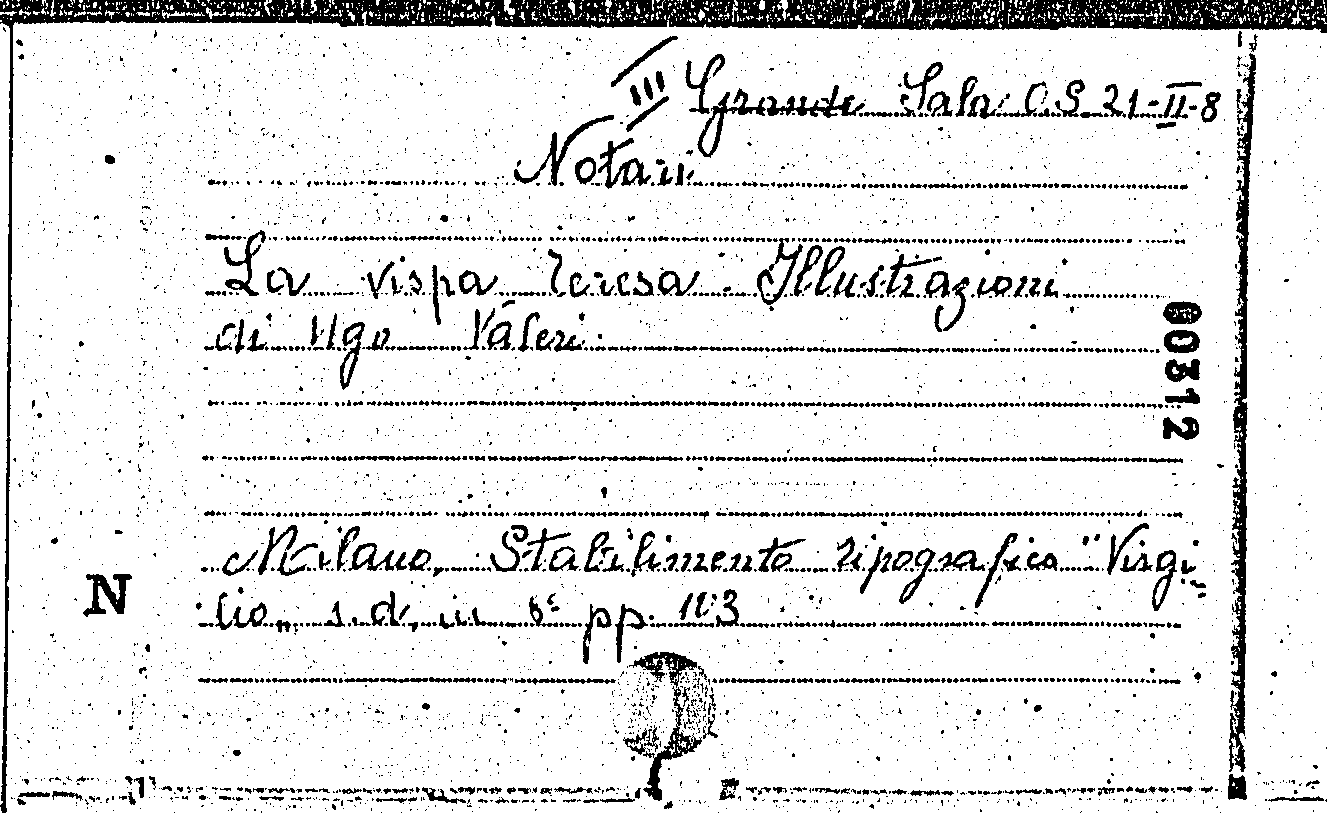 III Grande Sala O.S. 21-II-8
Notari
La vispa Teresa. Illustrazioni
di Ugo Valeri.
00312
Milano, Stabilimento tipografico "Virgi=
N
lio„ s.d. in 8° pp. 103